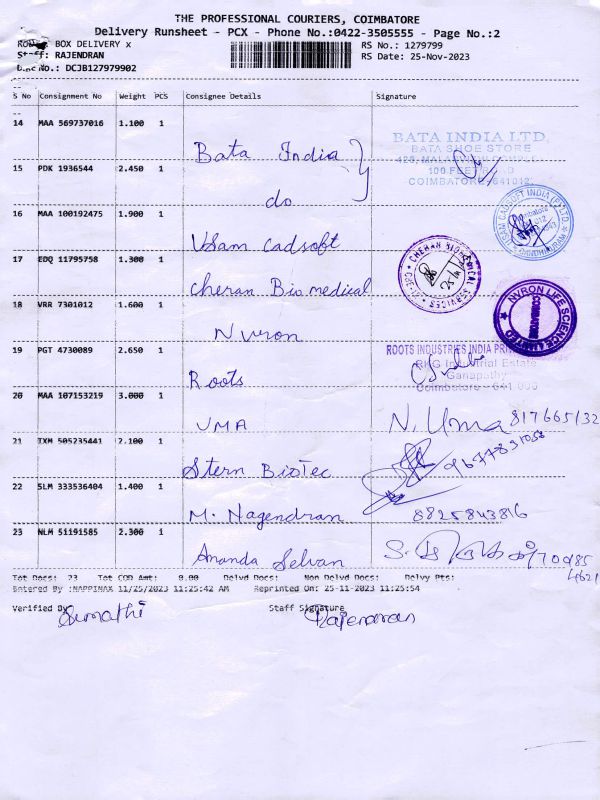 THE PROFESSIONAL COURIERS, COIMBATORE
Delivery Runsheet - PCX - Phone No.:0422-3505555 - Page No.:2
BOX DELIVERY x
RS No.: 1279799
Staff: RAJENDRAN
RS Date: 25-Nov-2023
No.: DCJB127979902
S No Consignment No Weight PCS Consignee Details Signature
14 MAA 569737016 1.100 1 Bata India
BATA INDIA LTD.
BATA SHOE STORE
100 FEET ROAD
COIMBATORE 641012
15 PDK 1936544 2.450 1 do
16 MAA 100192475 1.900 1 USam Cadsoft
USAM CADSOFT INDIA (P) LTD
17 EDQ 11795758 1.300 1 Cheran Biomedical
CHERAN BIOMEDICAL SERVICES
18 VRR 7301012 1.600 1 Nvron
NVRON LIFE SCIENCE LIMITED
COIMBATORE
19 PGT 4730089 2.650 1 Roots
ROOTS INDUSTRIES INDIA
RKG Industrial Estate
Ganapathy
Coimbatore - 641 006
20 MAA 107153219 3.000 1 UMA N. Uma 817665132
21 IXM 505235441 2.100 1 Stern BioTec 9677831058
22 SLM 333536404 1.400 1 M. Nagendran 8825843816
23 NLM 51191585 2.300 1 Ananda Selvan
Tot Docs: 23 Tot COD Amt: 0.00 Delvd Docs: Non Delvd Docs: Delvy Pts:
Entered By :NAPPINAX 11/25/2023 11:25:42 AM Reprinted On: 25-11-2023 11:25:54
Verified By Sumathi Staff Signature Rajendran